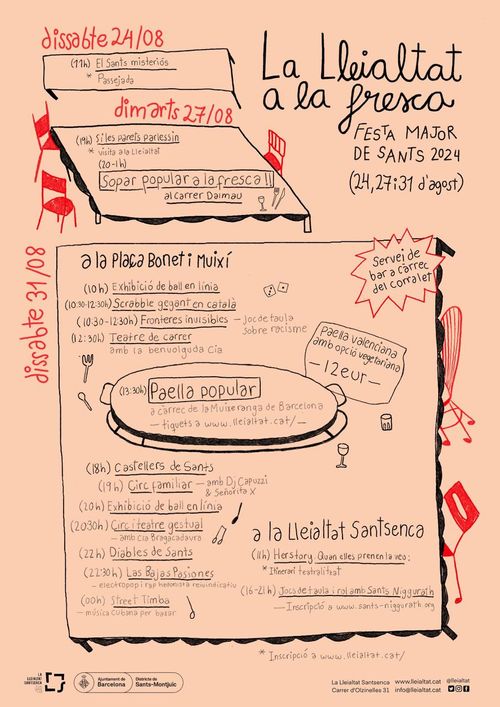 dissabte 24/08
(11h) El Sants misteriós
* Passejada
La Lleialtat
a la fresca
FESTA MAJOR
DE SANTS 2024
(24, 27 i 31 d'agost)
dimarts 27/08
(19h) Si les parets parlessin
* visita a la Lleialtat
(20-1h)
Sopar popular a la fresca II
al Carrer Dalmau
dissabte 31/08
a la Plaça Bonet i Muixí
Servei de
bar a càrrec
del corralet
(10h) Exhibició de ball en línia
(10:30-12:30h) Scrabble gegant en català
(10:30-12:30h) Fronteres invisibles — joc de taula
sobre racisme
(12:30h) Teatre de carrer
amb la benvolguda Cia
Paella valenciana
amb opció vegetariana
— 12eur —
(13:30h) Paella popular
a càrrec de la Muixeranga de Barcelona
— tiquets a www.lleialtat.cat/ —
(18h) Castellers de Sants
(19h) Circ familiar — amb Dj Capuzzi
& Señorita X
(20h) Exhibició de ball en línia
(20:30h) Circ i teatre gestual
— amb Cia Bragacadavra
(22h) Diables de Sants
(22:30h) Las Bajas Pasiones
— electropop i rap hedonista reivindicatiu
(00h) Street Timba
— música cubana per ballar
a la Lleialtat Santsenca
(11h) Herstory. Quan elles prenen la veu:
* Itinerari teatralitzat
(16-21h) Jocs de taula i rol amb Sants Niggurath
— Inscripció a www.sants-niggurath.org
* Inscripció a www.lleialtat.cat/
LA
LLEIALTAT
SANTSENCA
Ajuntament de
Barcelona
Districte de
Sants-Montjuïc
La Lleialtat Santsenca
Carrer d'Olzinelles 31
www.lleialtat.cat
info@lleialtat.cat
@lleialtat